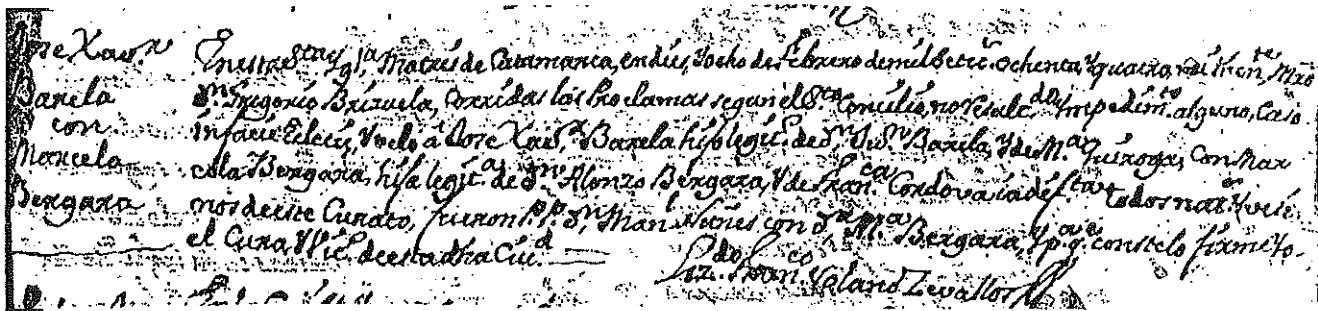 Jose Xavr
Barela
con
Marcela
Bergara
En esta Sta Yga Matris de Catamarca, en dies, y ocho de Febrero de mil Setec. ochenta y quatro, mi Then.te Mro
Dn Grigorio Brizuela, Corridas las Proclamas segun el Sto Concilio, no resaltdo Ympedimto alguno, Caso
infacie Eclecie, y velo â Jose Xavr Barela hijo legit. de Dn Jun Barela, y de Ma Quiroga, con Mar
cela Bergara, hija legit.a de Dn Alonzo Bergara, y de Franca Cordova ia defta todos nats y vesi
nos de este Curato, fueron P.P. Dn Man. Nuñes con Da Ma Bergara, y pa qe conste lo firmé io
el Cura y Vic. de esta dha Ciud
Lizdo Franco Zevallos